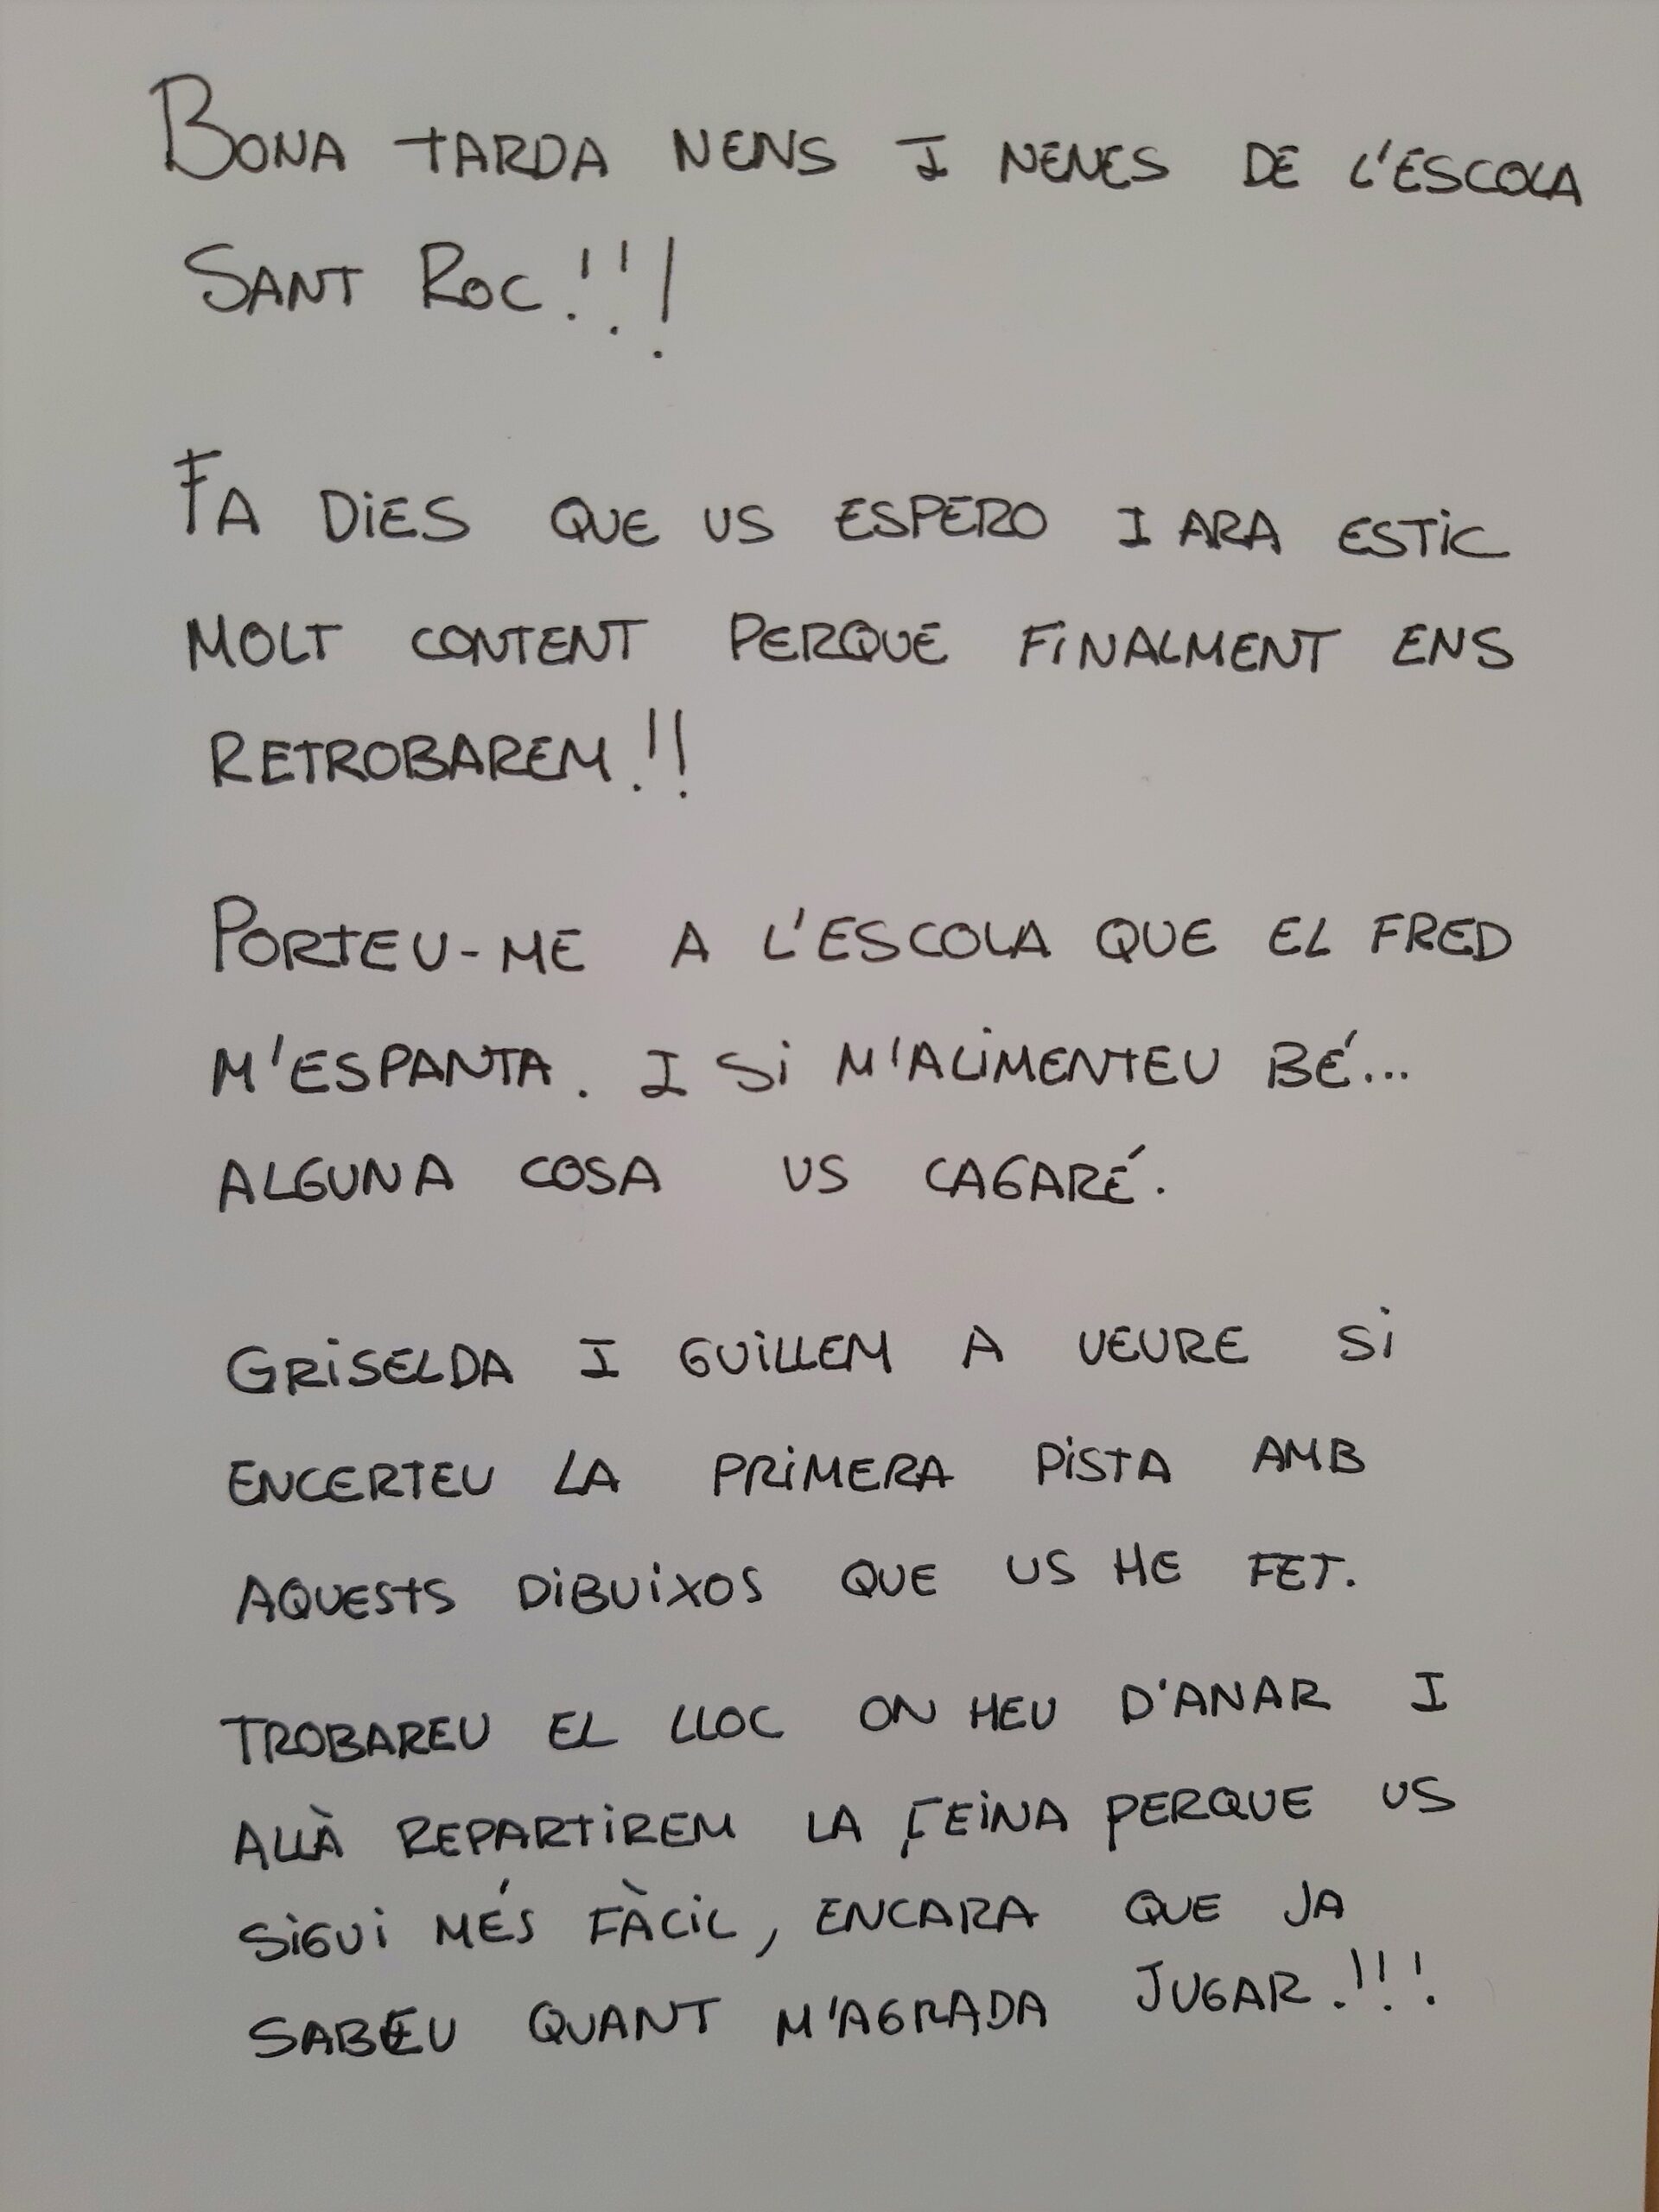 BONA TARDA NENS I NENES DE L'ESCOLA
SANT ROC!!!
FA DIES QUE US ESPERO I ARA ESTIC
MOLT CONTENT PERQUE FINALMENT ENS
RETROBAREM!!
PORTEU-ME A L'ESCOLA QUE EL FRED
M'ESPANTA. I SI M'ALIMENTEU BÉ...
ALGUNA COSA US CAGARÉ.
GRISELDA I GUILLEM A VEURE SI
ENCERTEU LA PRIMERA PISTA AMB
AQUESTS DIBUIXOS QUE US HE FET.
TROBAREU EL LLOC ON HEU D'ANAR I
ALLÀ REPARTIREM LA FEINA PERQUE US
SIGUI MÉS FÀCIL, ENCARA QUE JA
SABEU QUANT M'AGRADA JUGAR!!!